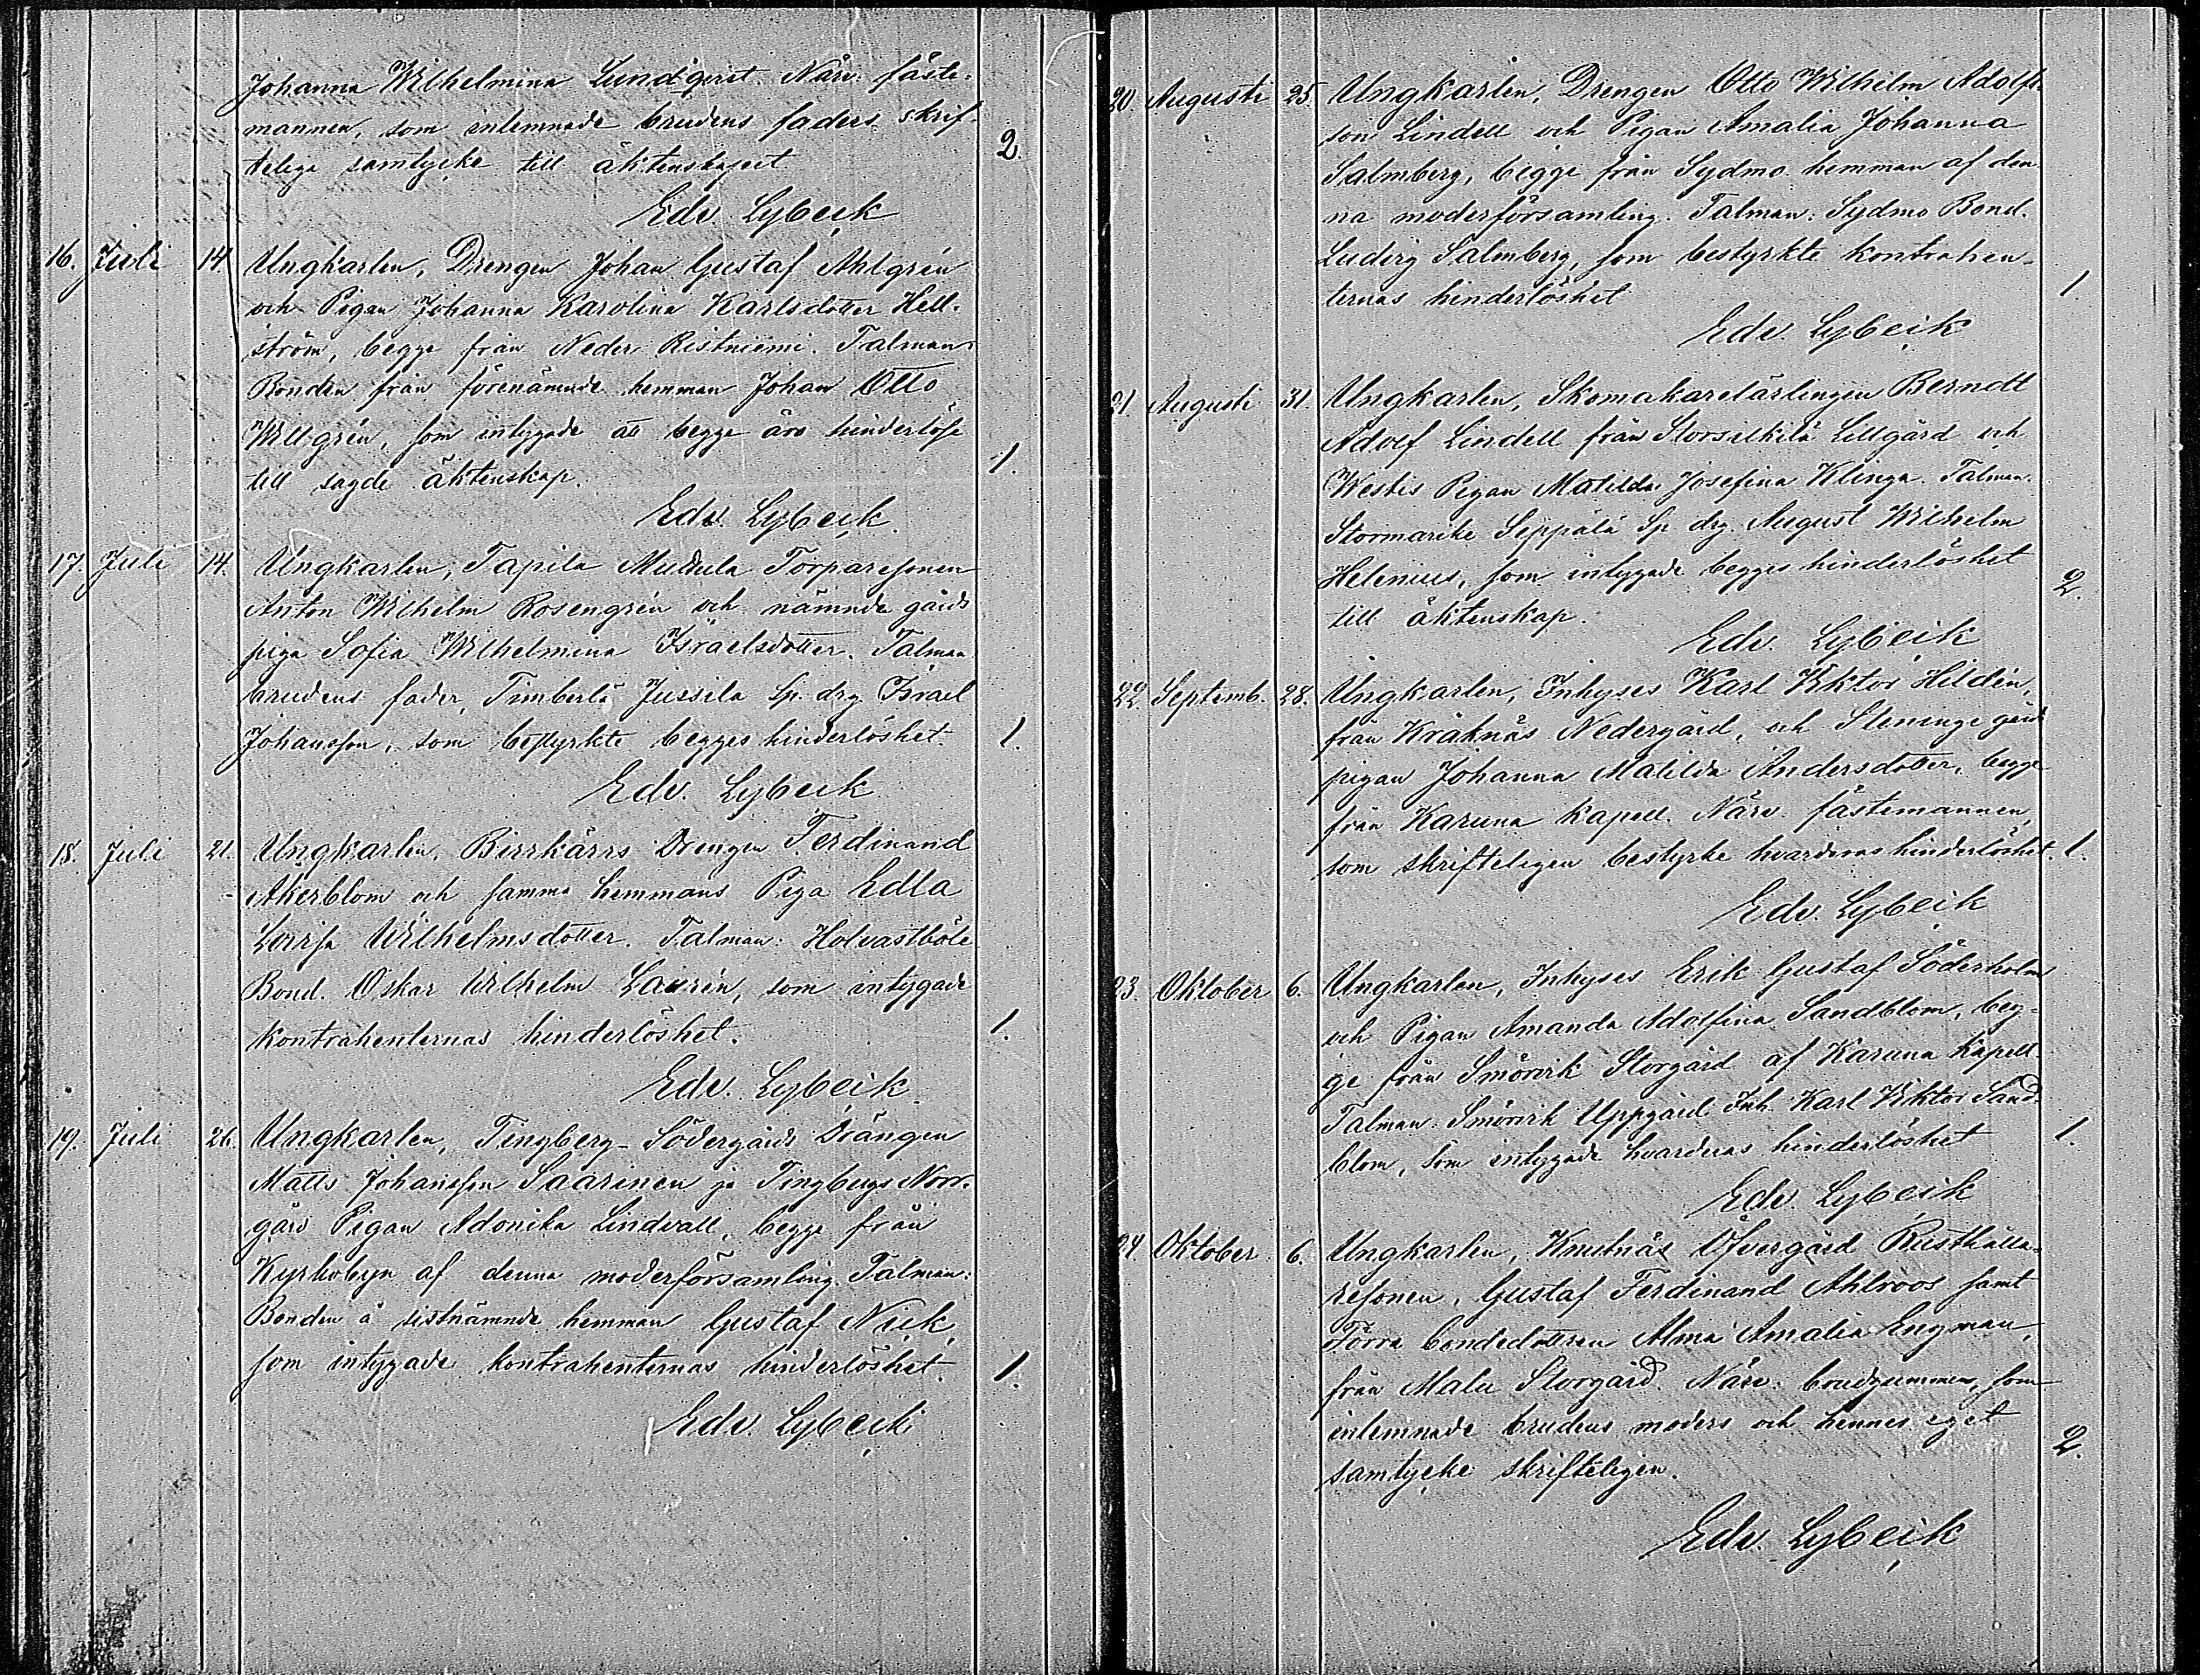 Johanna Wilhelmina Lundqvist. Närv. fäste-
mannen, som inlemnade brudens faders skrif-
teliga samtycke till äktenskapet 2.
Edv. Lybeck
16. Juli 14. Ungkarlen, Drengen Johan Gustaf Ahlgrén
och Pigan Johanna Karolina Karlsdotter Hell-
ström, begge från Neder Ristniemi. Talman:
Bonden från förenämnde hemman Johan Otto
Willgrén, som intygade att begge äro hinderlöse
till sagde äktenskap. 1.
Edv. Lybeck.
17. Juli 14. Ungkarlen, Tapila Mudula Torparesonen
Anton Wilhelm Rosengrén och nämnde gårds
piga Sofia Wilhelmina Israelsdotter. Talman
brudens fader, Timberlä Jussila Sp. drg. Israel
Johansson, som bestyrkte begges hinderlöshet. 1.
Edv. Lybeck
18. Juli 21. Ungkarlen, Birrkärrs Drengen Ferdinand
Akerblom och samma hemmans Piga Edla
Lovisa Wilhelmsdotter. Talman: Holvastböle
Bond. Oskar Wilhelm Laurén, som intygade
kontrahenternas hinderlöshet. 1.
Edv. Lybeck.
19. Juli 26. Ungkarlen, Tingberg-Södergårds Drängen
Matts Johansson Saarinen ja Tingbergs Norr-
gårds Pigan Adonika Lindvall, begge från
Kyrkobyn af denna moderförsamling. Talman:
Bonden å sistnämnde hemman Gustaf Nick,
som intygade kontrahenternas hinderlöshet. 1.
Edv. Lybeck
20. Augusti 25. Ungkarlen, Drengen Otto Wilhelm Adolfs-
son Lindell och Pigan Amalia Johanna
Salmberg, begge från Sydmo hemman af den-
na moderförsamling. Talman: Sydmo Bond.
Ludvig Salmberg, som bestyrkte kontrahen-
ternas hinderlöshet 1
Edv. Lybeck
21 Augusti 31. Ungkarlen, Skomakarelärlingen Berndt
Adolf Lindell från Storsilkilä Lillgård och
Westis Pigan Matilda Josefina Klinga. Talman.
Stormarike Seppälä Sp. drg. August Wilhelm
Helenius, som intygade begges hinderlöshet
till äktenskap. 2.
Edv. Lybeck
22. Septemb. 28. Ungkarlen, Inhyses Karl Viktor Hildén,
från Kråknäs Nedergård, och Steninge gårds
pigan Johanna Matilda Andersdotter, begge
från Karuna kapell. Närv. fästemannen,
som skrifteligen bestyrke hvarderas hinderlöshet. 1.
Edv. Lybeck
23. Oktober 6. Ungkarlen, Inhyses Erik Gustaf Söderholm
och Pigan Amanda Adolfina Sandblom, beg-
ge från Smörvik Storgård af Karuna Kapell.
Talman. Smörvik Uppgård Inh. Karl Viktor Sand-
blom, som intygade hvarderas hinderlöshet 1.
Edv. Lybeck
24. Oktober. 6. Ungkarlen, Knutnäs Öfvergård Rusthålla-
resonen, Gustaf Ferdinand Ahlroos samt
Förra bondedottren Alma Amalia Engman,
från Malu Storgård. Närv. brudgummen, som
inlemnade brudens moders och hennes eget
samtycke skrifteligen. 2.
Edv. Lybeck